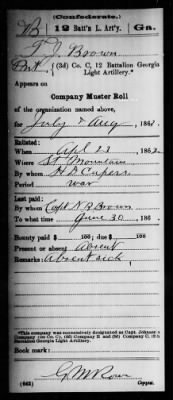 (Confederate.)
B 12 Batt'n L. Art'y. Ga.
T J Brown
Pvt, (3d) Co. C, 12 Battalion Georgia
Light Artillery.*
Appears on
Company Muster Roll
of the organization named above,
for July & Aug, 186
Enlisted:
When Apl 23, 1862.
Where St. Mountain
By whom H D Capers
Period war
Last paid:
By whom Capt N B Brown
To what time June 30, 186
Bounty paid $ 100; due $ 100
Present or absent Absent
Remarks: Absent sick
*This company was successively designated as Capt. Johnson's
Company (3d) Company E and (3d) Company C, 12th
Battalion Georgia Light Artillery.
Book mark:
G M Rowe
(642) Copyist.